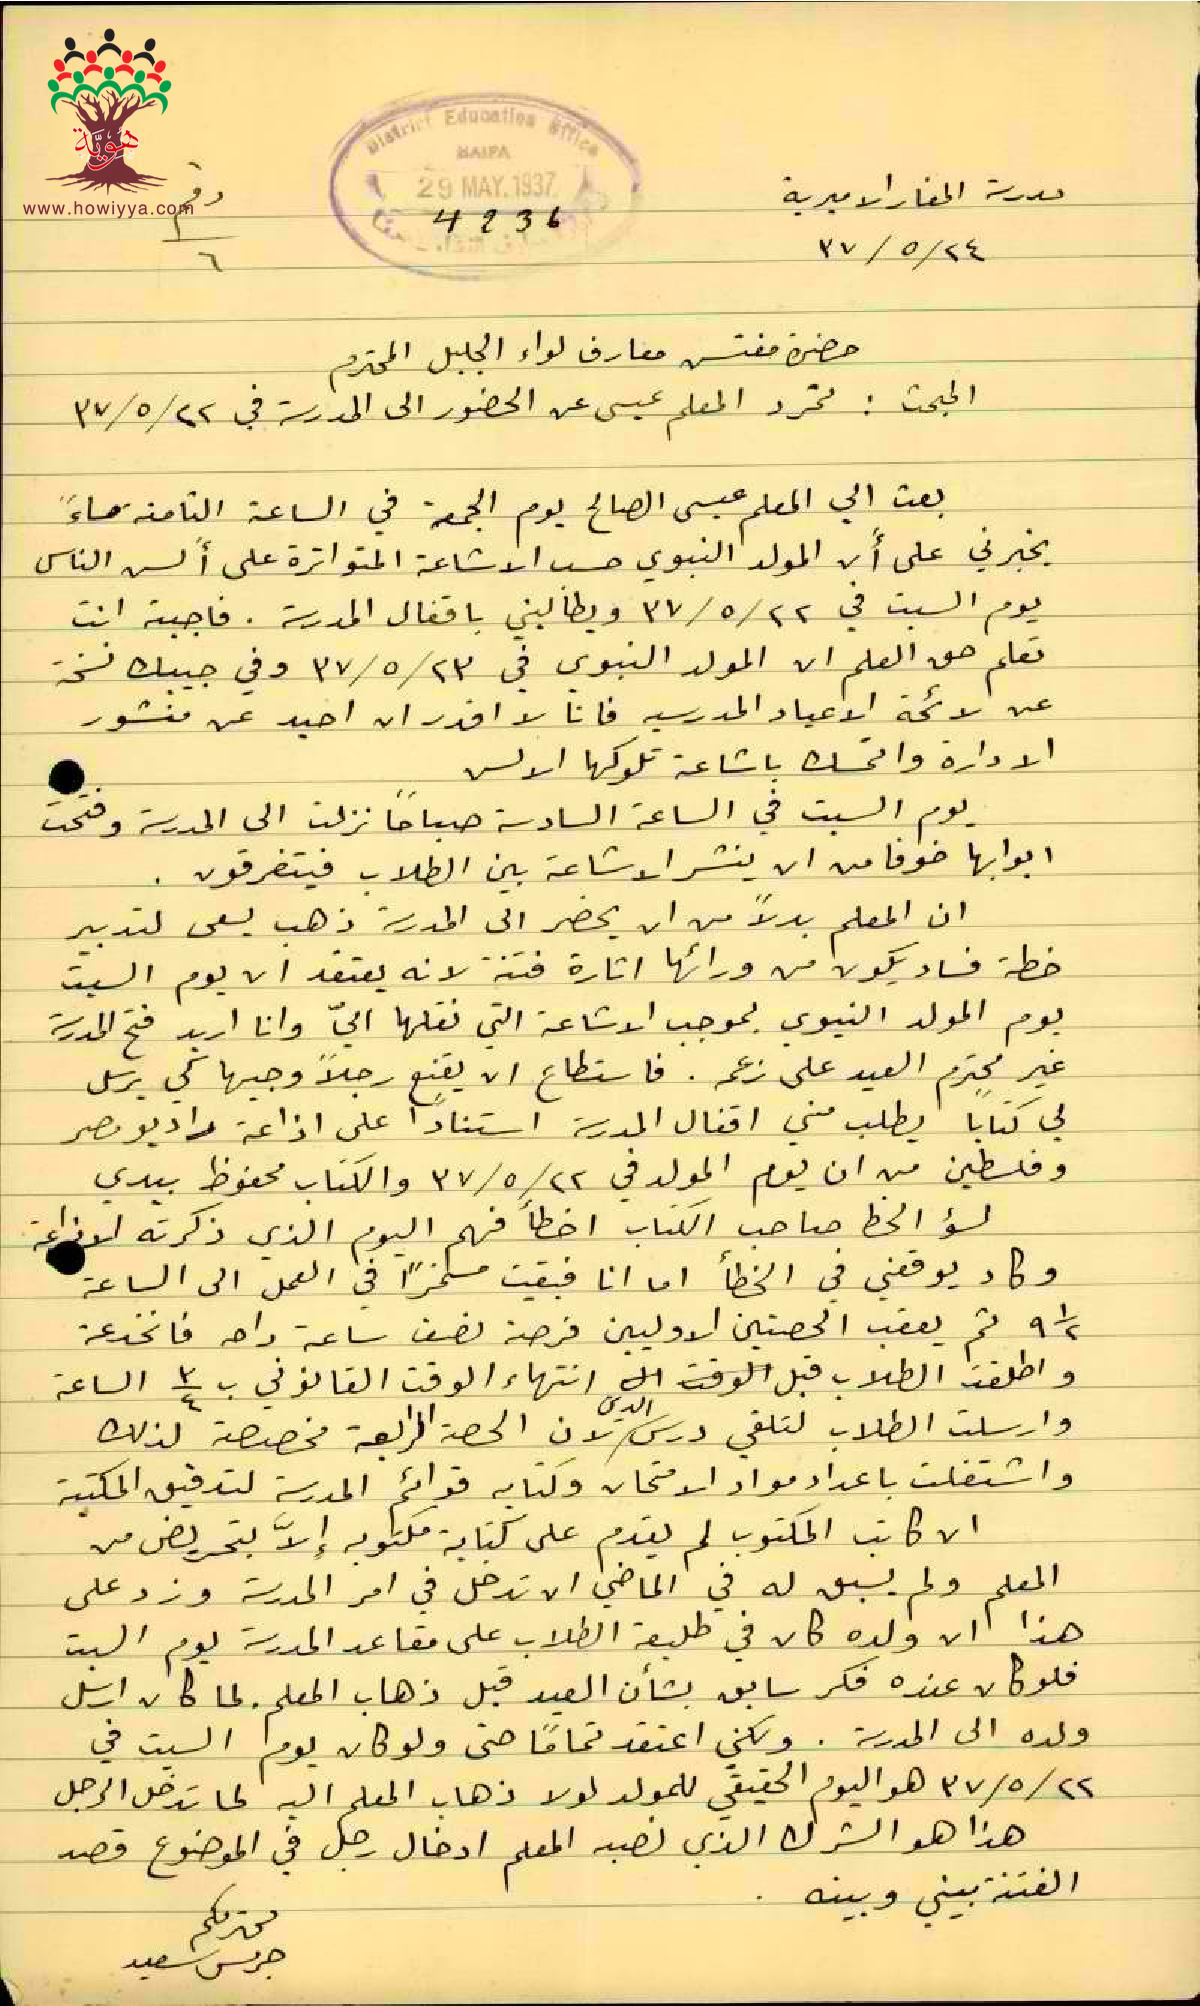 هوية
www.howiyya.com
District Education Office
HAIFA
29 MAY. 1937
4236
رقم
٦
مدرسة المغار الاميرية
٣٧/٥/٢٤
حضرة مفتش معارف لواء الجليل المحترم
المبحث : تمرد المعلم عيسى عن الحضور الى المدرسة في ٣٧/٥/٢٢
بعث الي المعلم عيسى الصالح يوم الجمعة في الساعة الثامنة مساءً
يخبرني على أن المولد النبوي حسب الاشاعة المتواترة على ألسن الناس
يوم السبت في ٣٧/٥/٢٢ ويطالبني باقفال المدرسة . فاجبته انت
تعلم حق العلم ان المولد النبوي في ٣٧/٥/٢٣ وفي جيبك نسخة
عن لائحة الاعياد المدرسيه فانا لا اقدر ان احيد عن منشور
الادارة واتمسك باشاعة تلوكها الالسن
يوم السبت في الساعة السادسة صباحاً نزلت الى المدرسة وفتحت
ابوابها خوفا من ان ينشر الاشاعة بين الطلاب فيتفرقون .
ان المعلم بدلاً من ان يحضر الى المدرسة ذهب يسعى لتدبير
خطة فساد يكون من ورائها اثارة فتنة لانه يعتقد ان يوم السبت
يوم المولد النبوي بموجب الاشاعة التي نقلها اليّ وانا اريد فتح المدرسة
غير محترم العيد على زعمه . فاستطاع ان يقنع رجلاً وجيها كي يرسل
لي كتاباً يطلب مني اقفال المدرسة استناداً على اذاعة راديو مصر
وفلسطين من ان يوم المولد في ٣٧/٥/٢٢ والكتاب محفوظ بيدي
لسؤ الحظ صاحب الكتاب اخطأ فهم اليوم الذي ذكرته الاذاعة
وكاد يوقعني في الخطأ اما انا فبقيت مستمراً في العمل الى الساعة
٩ ١/٢ ثم يعقب الحصتين الاوليين فرصة نصف ساعة راحه فانخدعة
واطلقت الطلاب قبل الوقت اي انتهاء الوقت القانوني ب ٣/٤ الساعة
وارسلت الطلاب لتلقي درس الدين لان الحصة الرابعة مخصصة لذلك
واشتغلت باعداد مواد الامتحان وكتابه قوائم المدرسة لتدقيق المكتبة
ان كاتب المكتوب لم يقدم على كتابة مكتوبه إلاّ بتحريض من
المعلم ولم يسبق له في الماضي ان تدخل في امر المدرسة وزد على
هذا ان ولده كان في طليعة الطلاب على مقاعد المدرسة يوم السبت
فلو كان عنده فكر سابق بشأن العيد قبل ذهاب المعلم. لما كان ارسل
ولده الى المدرسة . ولكني اعتقد تمامًا حتى ولو كان يوم السبت في
٣٧/٥/٢٢ هو اليوم الحقيقي للمولد لولا ذهاب المعلم اليه لما تدخل الرجل
هذا هو الشرك الذي نصبه المعلم ادخال رجل في الموضوع قصد
الفتنة بيني وبينه .
محترمكم
جريس سعيد